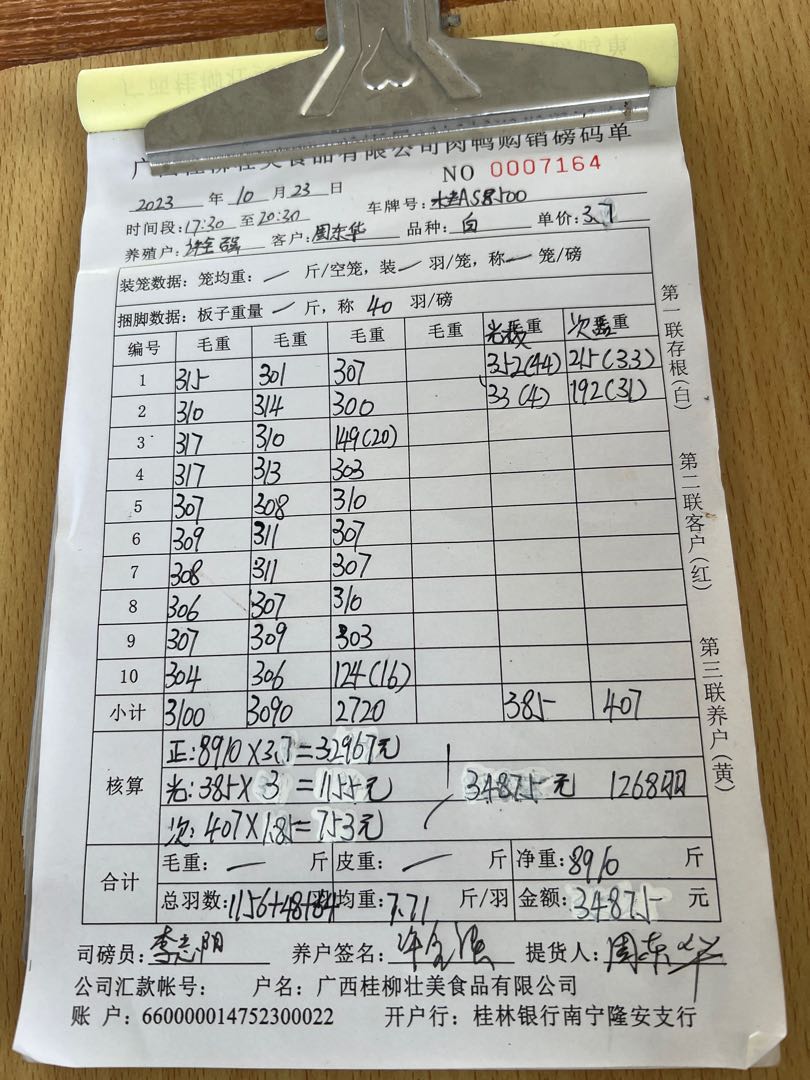 广西桂柳壮美食品有限公司肉鸭购销磅码单
NO 0007164
2023 年 10 月 23 日
时间段: 17:30 至 20:30 车牌号: AS8500
养殖户: 许全强 客户: 周东华 品种: 白 单价: 3.7
装笼数据: 笼均重: — 斤/空笼, 装 — 羽/笼, 称 — 笼/磅
捆脚数据: 板子重量 — 斤, 称 40 羽/磅
编号 毛重 毛重 毛重 毛重 光 重 次 重
1 315 301 307 352(44) 215(33)
2 310 314 300 33(4) 192(31)
3 317 310 149(20)
4 317 313 303
5 307 308 310
6 309 311 307
7 308 311 307
8 306 307 310
9 307 309 303
10 304 306 124(16)
小计 3100 3090 2720 385 407
核算
正: 8910×3.7=32967元
光: 385×3=1155元 34875元 1268羽
次: 407×1.85=753元
合计
毛重: — 斤 皮重: — 斤 净重: 8910 斤
总羽数: 1156+48+64 均重: 7.71 斤/羽 金额: 34875 元
司磅员: 李志阳 养户签名: 许全强 提货人: 周东华
公司汇款帐号: 户名: 广西桂柳壮美食品有限公司
账 户: 660000014752300022 开户行: 桂林银行南宁隆安支行
第一联存根(白)
第二联客户(红)
第三联养户(黄)